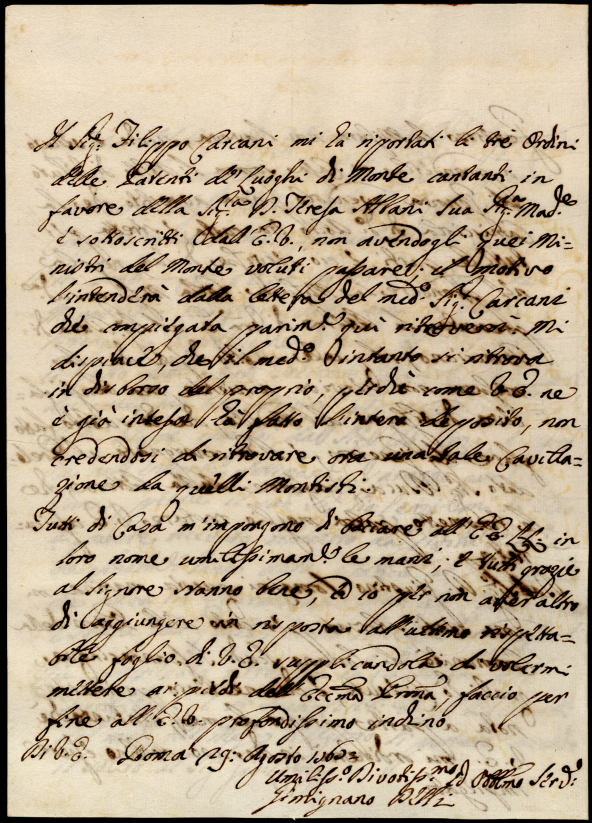 Il Sig.r Filippo Carcani mi hà riportati li trè Ordini
delle Patenti de' luoghi di Monte cantanti in
favore della Sig.ra D. Teresa Albani Sua Sig.ra Mad.e
è sottoscritti dal E.V., non avendogli quei Mi=
nistri del Monte voluti passare; il motivo
l'intenderà dalla lettera del med.o Sig.r Carcani
che compiegata parim.te quì ritroverà. Mi
dispiace, che il med.o intanto si ritrova
in disborzo del proprio, perche come V.E. ne
è già intesa hà fatto l'intero deposito, non
credendosi di ritrovare ora una tale Cavilla=
zione da quelli Montisti.
Tutti di Casa m'impongono di baciare all'EE. LL. in
loro nome umilissimam.te le mani; e tutti grazie
al Signore stanno bene, ed io per non aver altro
di saggiungere in risposta all'ultimo rispetta=
bile foglio di V.E. supplicandola di volermi
mettere a' piedi dell'Ecc.ma Prona, faccio per
fine all'E.V. profondissimo inchino
Di V.E. Roma 29: Agosto
Umiliss.o Divotiss.mo ed Obblmo Serv.e
Gimignano